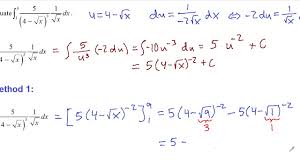 uate ∫ 5/(4-√x)³ 1/√x dx. u = 4-√x du = 1/(-2√x) dx ⇔ -2du = 1/√x
5/(4-√x)³ 1/√x dx = ∫ 5/u³ (-2 du) = ∫-10u⁻³ du = 5 u⁻² + C
= 5(4-√x)⁻² + C
ethod 1:
5/(4-√x)³ 1/√x dx = [5(4-√x)⁻²]₁⁹ = 5(4-√9)⁻² - 5(4-√1)⁻²
3 1
= 5 -